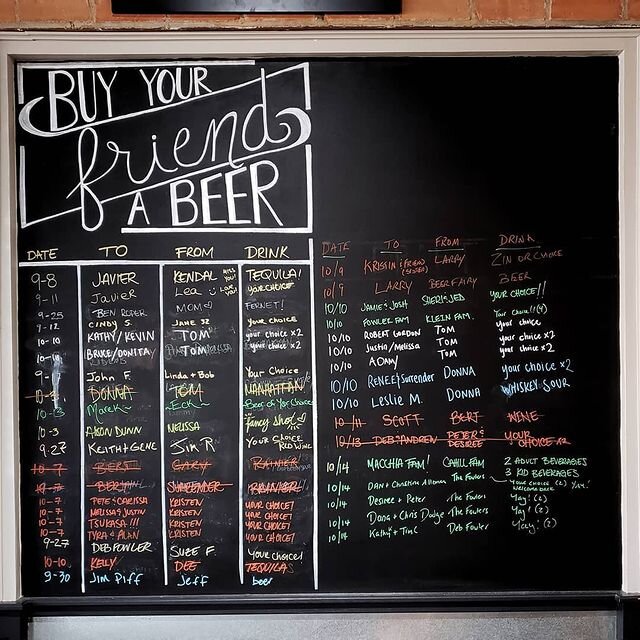 BUY YOUR
friend
A BEER
DATE TO FROM DRINK
9-8 JAVIER KENDAL TEQUILA!
9-11 Javier Lea YOUR CHOICE
9-25 BEN ROPER MOM FERNET!
9-12 CINDY S. JANE SZ your choice
10-10 KATHY/KEVIN TOM your choice x2
10-10 BRUCE/DONITA TOM your choice x2
John F. Linda + Bob Your Choice
DONNA TOM MANHATTAN
Marek~ ~Eck~ Beer of Yor Choice
10-3 ALISON DUNN MELISSA fancy shot
9-27 KEITH+GENE Jim R YOUR CHOICE RED WINE
10-7 BERT GARY RAINIER
10-7 BERT SURRENDER
10-7 PETE & CARISSA KRISTEN YOUR CHOICE!
10-7 MELISSA & JUSTIN KRISTEN YOUR CHOICE!
10-7 TSUKASA!!! KRISTEN YOUR CHOICE!
10-7 TYRA & ALAN KRISTEN YOUR CHOICE!
9-27 DEB FOWLER SUZE F. YOUR CHOICE!
10-10 KELLY DEE TEQUILAS
9-30 Jim Piff Jeff beer
DATE TO FROM DRINK
10/9 KRISTIN LARRY ZIN OR CHOICE
10/9 LARRY BEER FAIRY BEER
10/10 JAMIE & JOSH SHERI & JED YOUR CHOICE!!
10/10 FOWLER FAM KLEIN FAM. Your Choice!!(4)
10/10 ROBERT GORDON TOM your choice
10/10 Justin/Melissa TOM your choice x2
10/10 ADAM TOM your choice x2
10/10 RENEE/Surrender DONNA your choice x2
10/10 Leslie M. DONNA WHISKEY SOUR
10/11 SCOTT BERT WINE
10/13 DEB & ANDREN PETER & DESIREE YOUR CHOICE x2
10/14 MACCHIA FAM! CAHILL FAM 2 ADULT BEVERAGES
3 KID BEVERAGES
10/14 Dan + Christina Altman The Fowlers YOUR CHOICE (2)
WELCOME BACK
10/14 Desiree + Peter The Fowlers Yay! (2)
10/14 Dana + Chris Dodge The Fowlers Yay! (2)
10/14 Kathy + Tim C Deb Fowler Yay! (2)